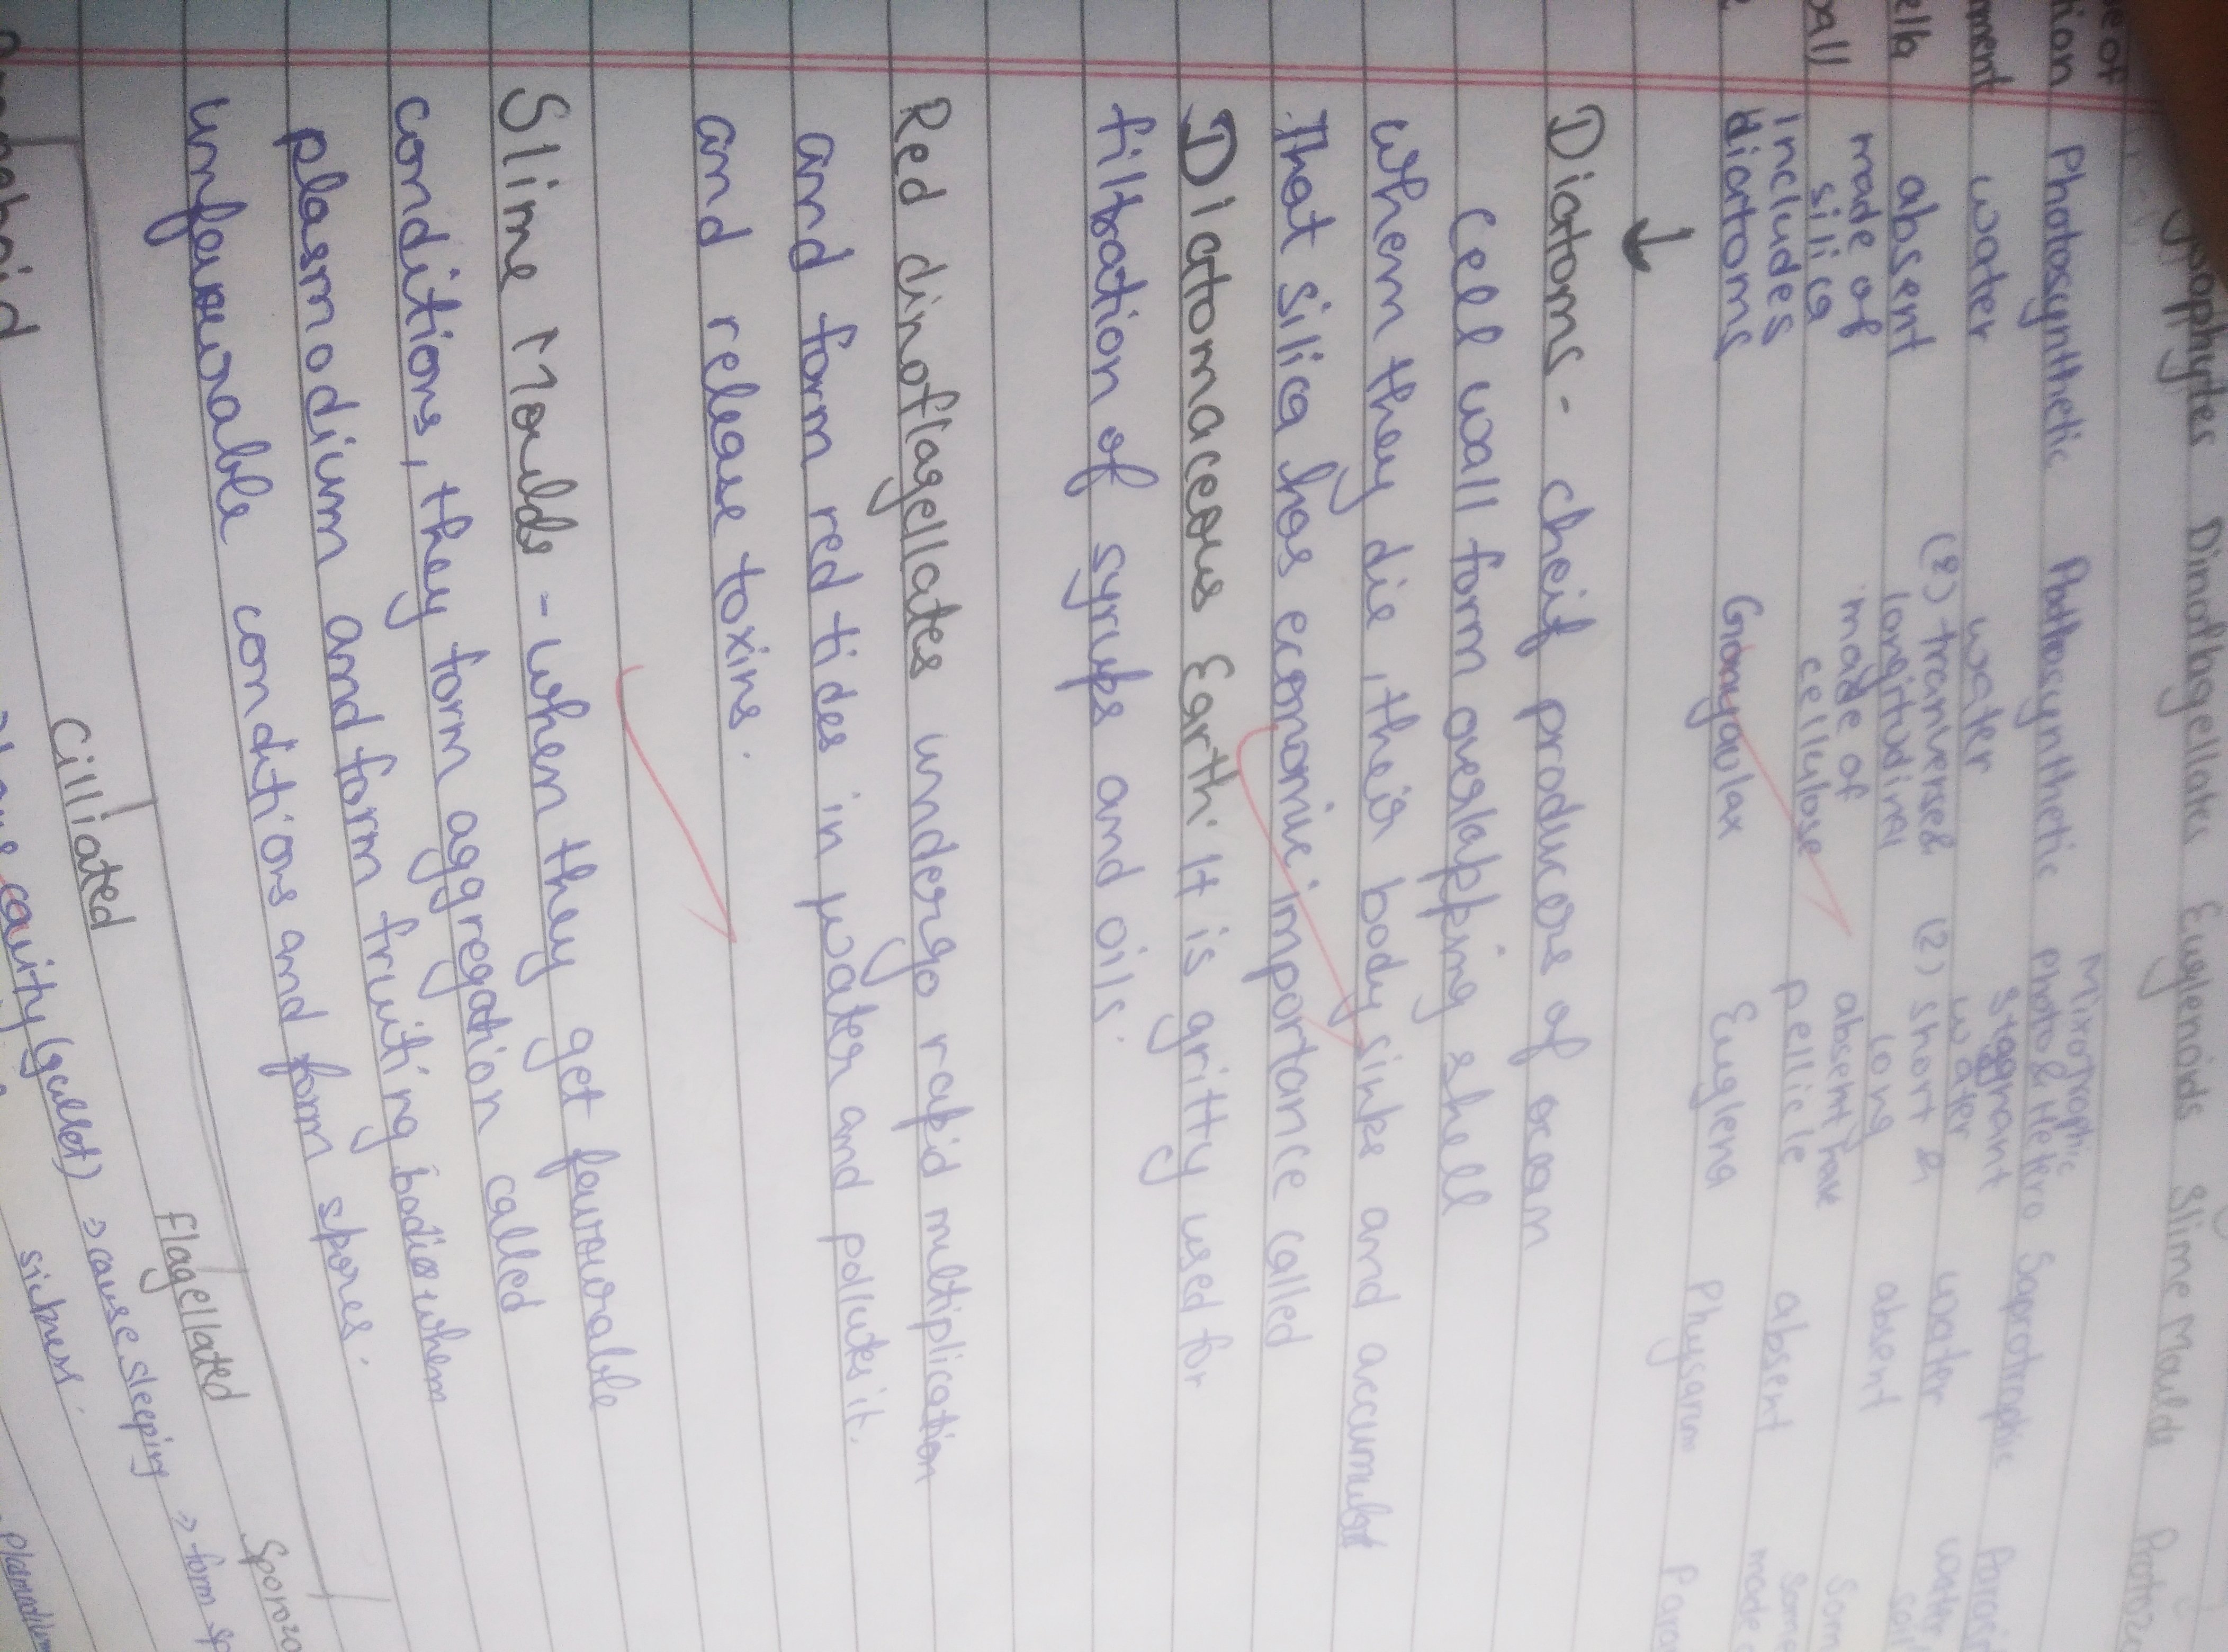 Dinoflagellates Euglenoids Slime Moulds
Mixotrophic
Photosynthetic Photosynthetic Photo & Hetero Saprotrophic
water water Stagnant water water
absent (2) tranverse & longitudinal (2) short & long absent
made of silica made of cellulose absent have pellicle absent
includes diatoms Gonyaulax Euglena Physarum
↓
Diatoms - cheif producers of ocean
Cell wall form overlapping shell
when they die, their body sinks and accumulat
That silica has economic importance called
Diatomaceous Earth. It is gritty used for
filtration of syrups and oils.
Red dinoflagellates undergo rapid multiplication
and form red tides in water and pollutes it.
and release toxins.
Slime Moulds - when they get favourable
conditions, they form aggregation called
plasmodium and form fruiting bodies when
unfavourable conditions and form spores.
Cilliated flagellated
cavity (gullet) > cause sleeping > form
sickness.